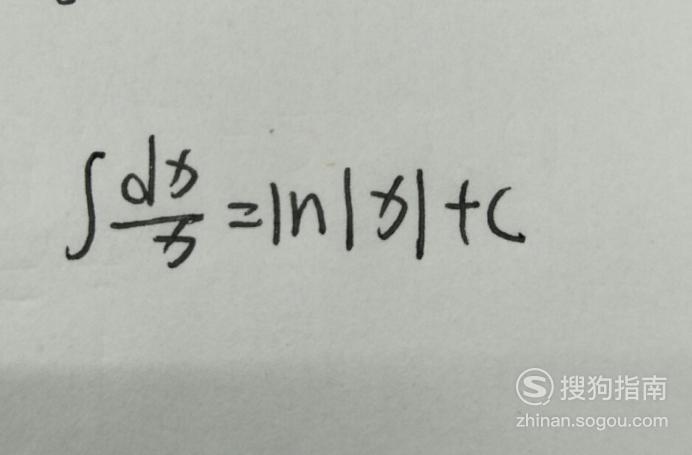 ∫ dx/x = ln|x| + c
搜狗指南
zhinan.sogou.com